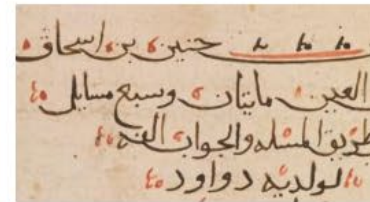 حنين بن اسحاق
العين مايتان وسبع مسايل
طريق المسله والجواب الفه
لولديه دواود